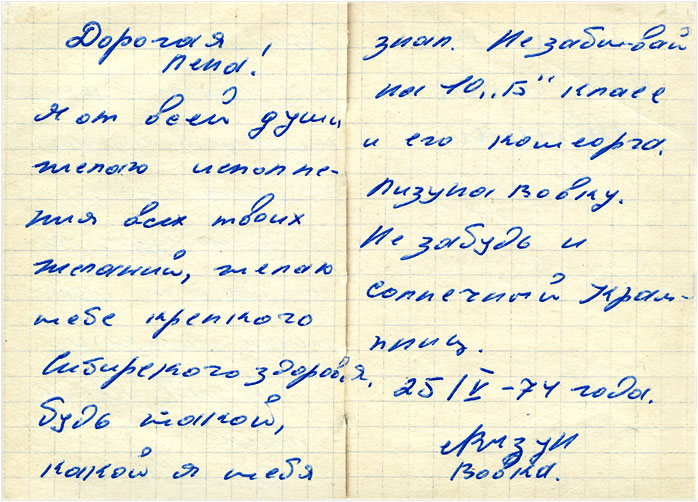 Дорогая
Лена!
Я от всей души
желаю исполне-
ния всех твоих
желаний, желаю
тебе крепкого
Сибирского здоровья,
будь такой,
какой я тебя
знал. Не забывай
на 10 „Б" класс
и его комсорга.
Лизуна Вовку.
Не забудь и
солнечный Крам-
пниц.
25/V-74 года.
Лизун
Вовка.